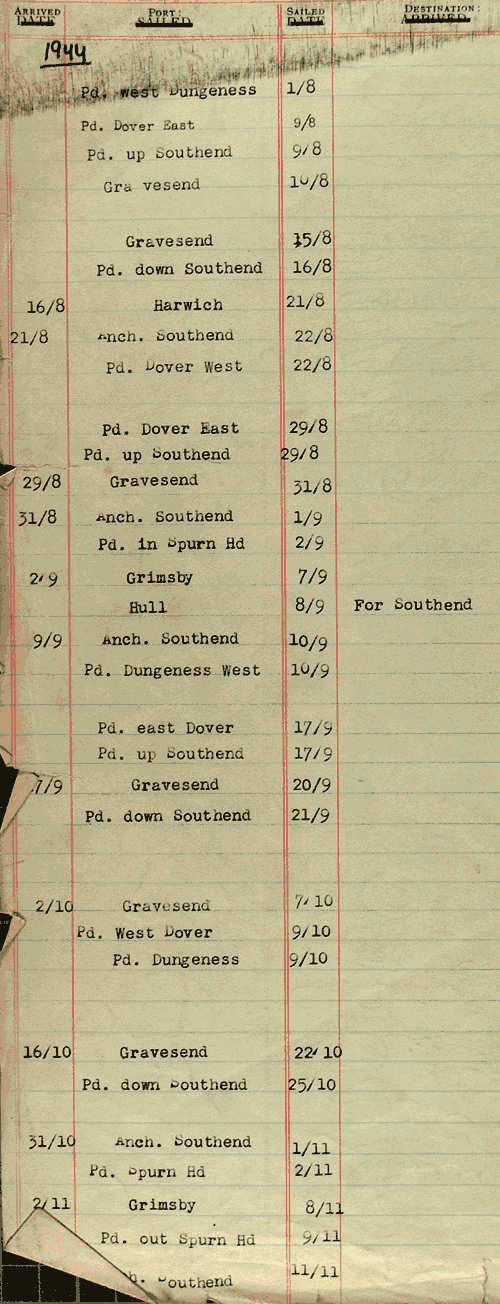 ARRIVED DATE PORT: SAILED SAILED DATE DESTINATION: ARRIVED
1944
Pd. west Dungeness 1/8
Pd. Dover East 9/8
Pd. up Southend 9/8
Gra vesend 10/8
Gravesend 15/8
Pd. down Southend 16/8
16/8 Harwich 21/8
21/8 Anch. Southend 22/8
Pd. Dover West 22/8
Pd. Dover East 29/8
Pd. up Southend 29/8
29/8 Gravesend 31/8
31/8 Anch. Southend 1/9
Pd. in Spurn Hd 2/9
2/9 Grimsby 7/9
Hull 8/9 For Southend
9/9 Anch. Southend 10/9
Pd. Dungeness West 10/9
Pd. east Dover 17/9
Pd. up Southend 17/9
7/9 Gravesend 20/9
Pd. down Southend 21/9
2/10 Gravesend 7/10
Pd. West Dover 9/10
Pd. Dungeness 9/10
16/10 Gravesend 22/10
Pd. down Southend 25/10
31/10 Anch. Southend 1/11
Pd. Spurn Hd 2/11
2/11 Grimsby 8/11
Pd. out Spurn Hd 9/11
h. Southend 11/11